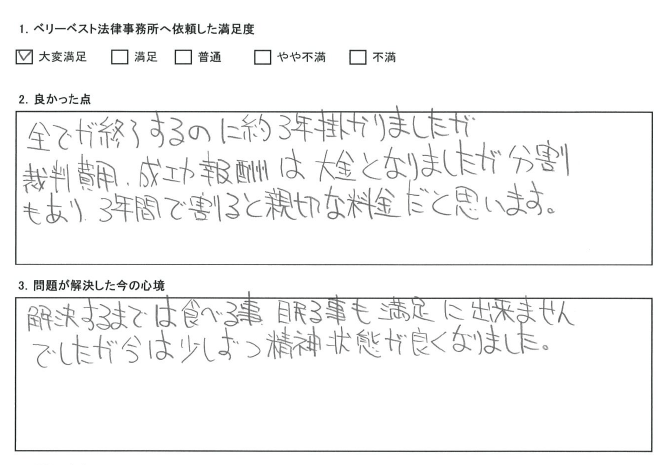 1. ベリーベスト法律事務所へ依頼した満足度
大変満足 満足 普通 やや不満 不満
2. 良かった点
全てが終了するのに約3年掛かりましたが
裁判費用、成功報酬は大金となりましたが分割
もあり、3年間で割ると親切な料金だと思います。
3. 問題が解決した今の心境
解決するまでは食べる事 眠る事も満足に出来ません
でしたが今は少しずつ精神状態が良くなりました。